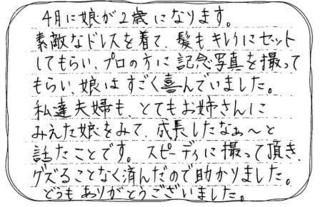 4月に娘が2歳になります。
素敵なドレスを着て、髪もキレイにセット
してもらい、プロの方に記念写真を撮って
もらい、娘はすごく喜んでいました。
私達夫婦も、とてもお姉さんに
みえた娘をみて、成長したなぁ〜と
話たことです。スピーディに撮って頂き、
グズることなく済んだので助かりました。
どうもありがとうございました。